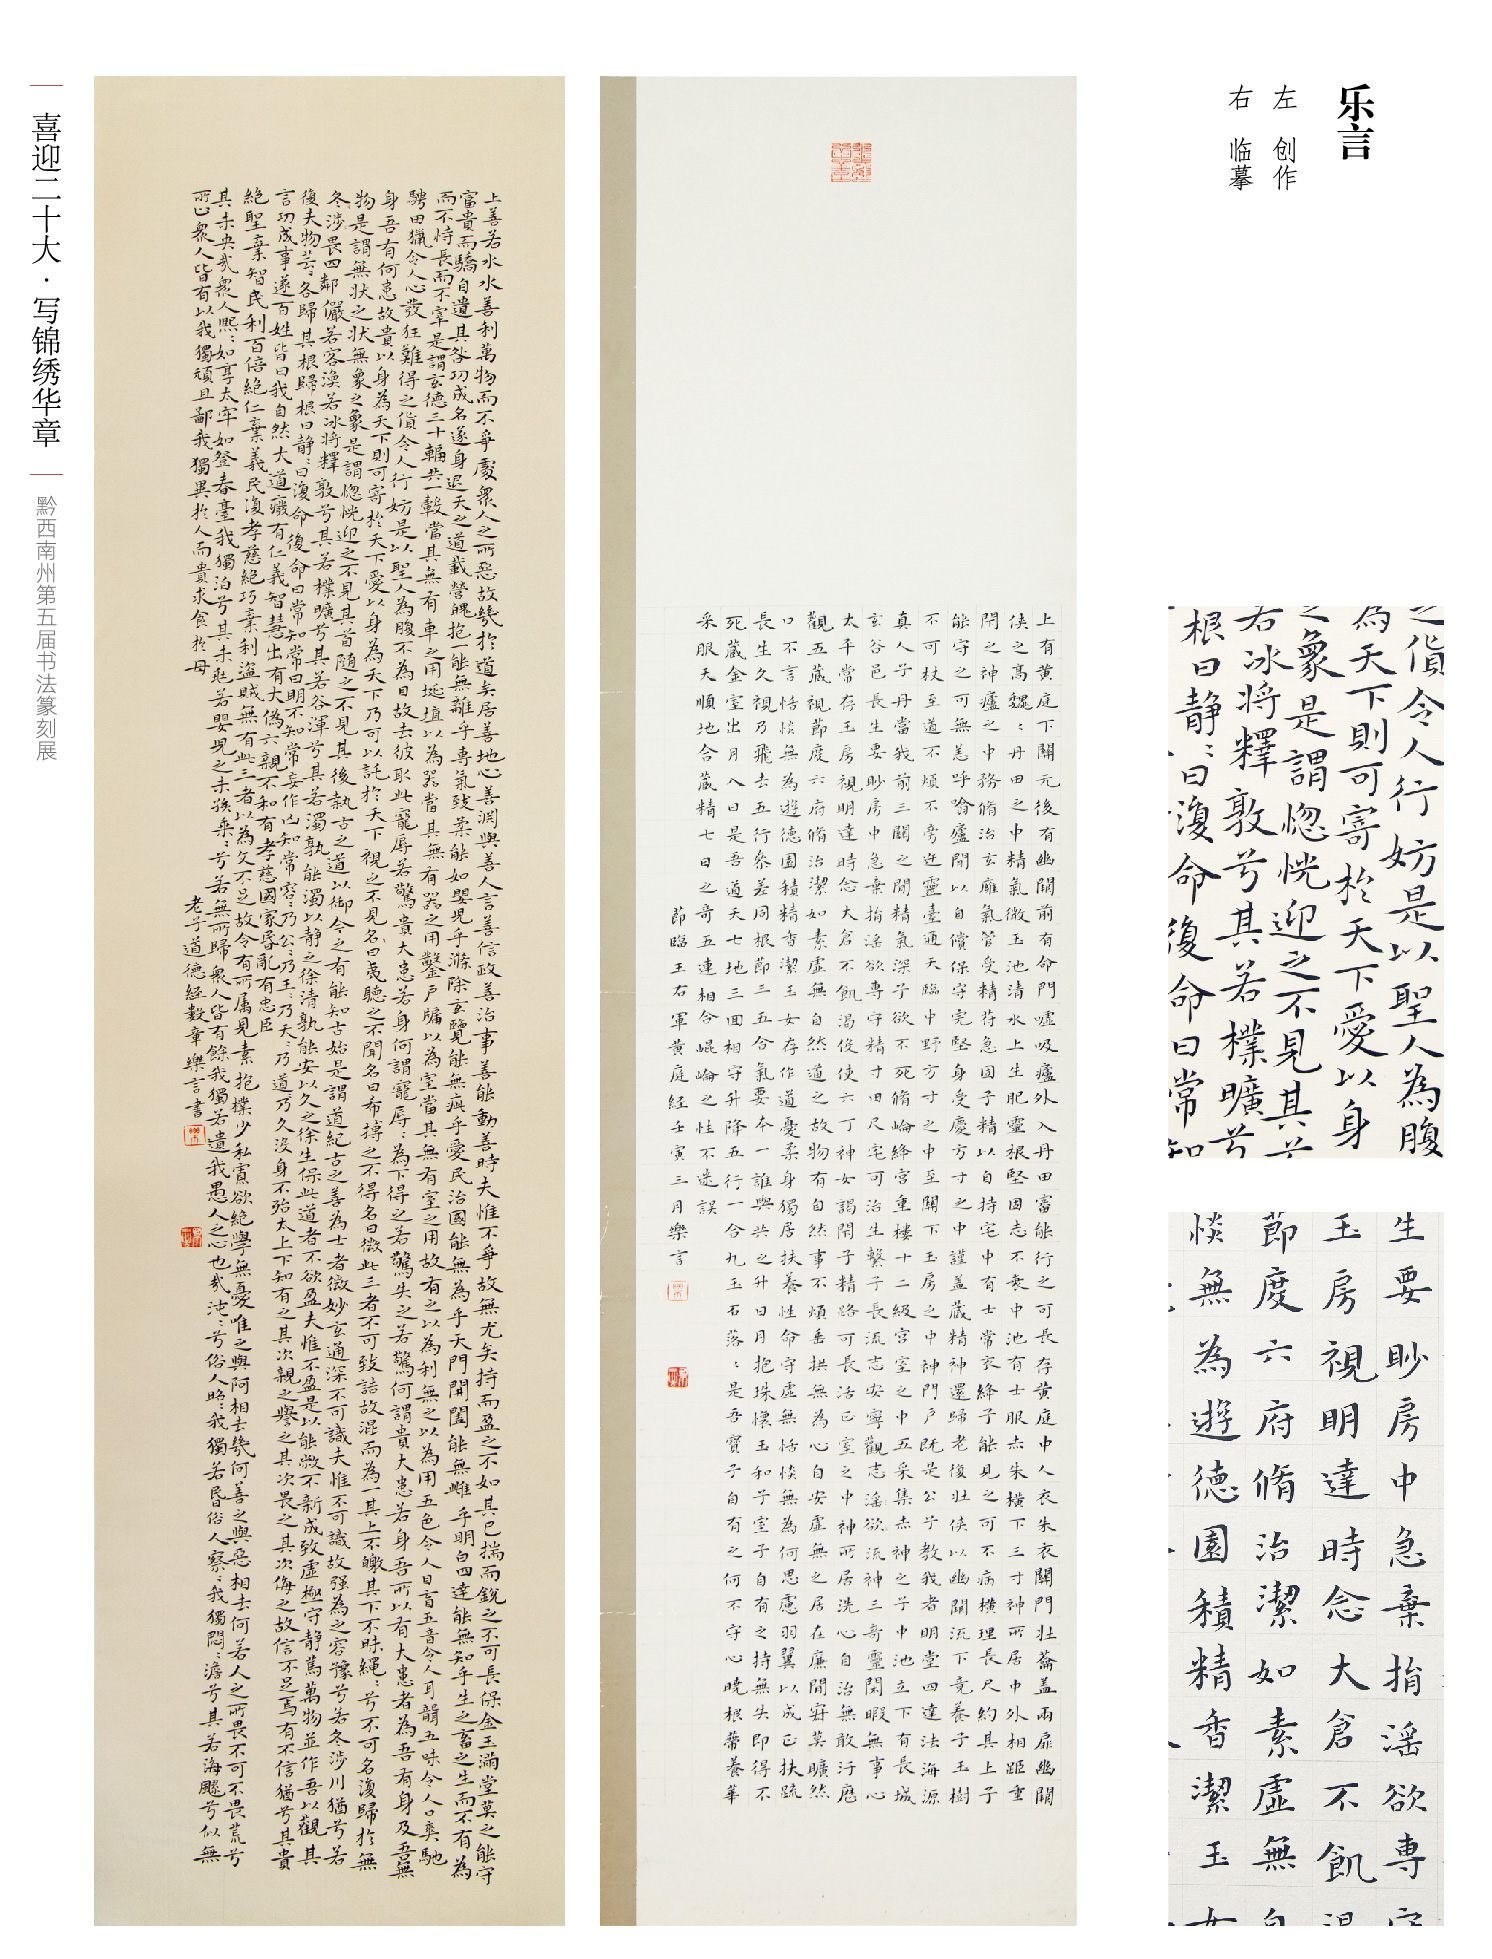 乐言
左 创作
右 临摹
上有黄庭下關元後有幽關前有命門噓吸廬外入丹田審能行之可長存黄庭中人衣朱衣關門壮籥盖兩扉幽關
侠之高巍:丹田之中精氣微玉池清水上生肥靈根堅固志不衰中池有士服赤朱横下三寸神所居中外相距重
閉之神廬之中務脩治玄廱氣管受精符急固子精以自持宅中有士常衣絳子能見之可不病横理長尺約其上子
能守之可無恙呼噏廬間以自償保守完堅身受慶方寸之中謹盖藏精神還歸老復壮侠以幽關流下竟養子玉樹
不可杖至道不煩不旁迕靈臺通天臨中野方寸之中至關下玉房之中神門戶既是公子教我者明堂四達法海源
真人子丹當我前三關之間精氣深子欲不死脩崘絳宫重樓十二級宫室之中五采集赤神之子中池立下有長城
玄谷邑長生要眇房中急棄捐淫欲專守精寸田尺宅可治生繫子長流志安寧觀志淫欲流神三奇靈閑暇無事心
太平常存玉房視明達時念大倉不飢渴侵使六丁神女謁閉子精路可長活正室之中神所居洗心自治無敢汙歷
觀五藏視節度六府脩治潔如素虛無自然道之故物有自然事不煩垂拱無為心自安虛無之居在廉間寂莫曠然
口不言恬惔無為遊德園積精香潔玉女存作道憂柔身獨居扶養性命守虛無恬惔無為何思慮羽翼以成正扶疏
長生久視乃飛去五行參差同根節三五合氣要本一誰與共之升日月抱珠懷玉和子室子自有之持無失即得不
死藏金室出月入日是吾道天七地三回相守升降五行一合九玉石落:是吾寶子自有之何不守心曉根蔕養華
采服天順地合藏精七日之奇五連相合崐崘之性不迷誤
節臨王右軍黄庭經壬寅三月樂言
上善若水水善利萬物而不爭處衆人之所惡故幾於道矣居善地心善渊與善人言善信政善治事善能動善時夫惟不爭故無尤矣持而盈之不如其已揣而銳之不可長保金玉滿堂莫之能守
富貴而驕自遺其咎功成名遂身退天之道載營魄抱一能無離乎專氣致柔能如嬰兒乎滌除玄覽能無疵乎愛民治國能無為乎天門開闔能無雌乎明白四達能無知乎生之畜之生而不有為
而不恃長而不宰是謂玄德三十輻共一轂當其無有車之用埏埴以為器當其無有器之用鑿戶牖以為室當其無有室之用故有之以為利無之以為用五色令人目盲五音令人耳聾五味令人口爽馳
騁田獵令人心發狂難得之貨令人行妨是以聖人為腹不為目故去彼取此寵辱若驚貴大患若身何謂寵辱:為下得之若驚失之若驚何謂貴大患若身吾所以有大患者為吾有身及吾無
身吾有何患故貴以身為天下則可寄於天下愛以身為天下乃可以託於天下視之不見名曰夷聽之不聞名曰希搏之不得名曰微此三者不可致詰故混而為一其上不皦其下不昧繩:兮不可名復歸於無
物是謂無状之状無象之象是謂惚恍迎之不見其首隨之不見其後執古之道以御今之有能知古始是謂道紀古之善為士者微妙玄通深不可識夫惟不可識故强為之容豫兮若冬涉川猶兮若
冬涉畏四鄰儼若客渙若冰将釋敦兮其若樸曠兮其若谷渾兮其若濁孰能濁以静之徐清孰能安以久之徐生保此道者不欲盈夫惟不盈是以能敝不新成致虛極守静篤萬物並作吾以觀其
復夫物芸:各歸其根歸根曰静:曰復命復命曰常知常曰明不知常妄作凶知常容:乃公:乃王:乃天:乃道:乃久没身不殆太上下知有之其次親之譽之其次畏之其次侮之故信不足焉有不信猶兮其貴
言功成事遂百姓皆曰我自然大道廢有仁義智慧出有大偽六親不和有孝慈國家昏亂有忠臣
絶聖棄智民利百倍絶仁棄義民復孝慈絶巧棄利盜賊無有此三者以為文不足故令有所属見素抱樸少私寡欲絶學無憂唯之與阿相去幾何善之與惡相去何若人之所畏不可不畏荒兮
其未央哉衆人熙:如享太牢如登春臺我獨泊兮其未兆若嬰兒之未孩乘:兮若無所歸衆人皆有餘我獨若遺我愚人之心也哉沌:兮俗人昭:我獨若昏俗人察:我獨悶:澹兮其若海飂兮似無
所止衆人皆有以我獨頑且鄙我獨異於人而貴求食於母
老子道德經數章樂言書
喜迎二十大·写锦绣华章
黔西南州第五届书法篆刻展
之貨令人行妨是以聖人為腹
為天下則可寄於天下愛以身
之象是謂惚恍迎之不見其
若冰将釋敦兮其若樸曠兮
根曰静:曰復命復命曰常知
生要眇房中急棄捐淫欲專守
玉房視明達時念大倉不飢渴
節度六府脩治潔如素虛無自
惔無為遊德園積精香潔玉女